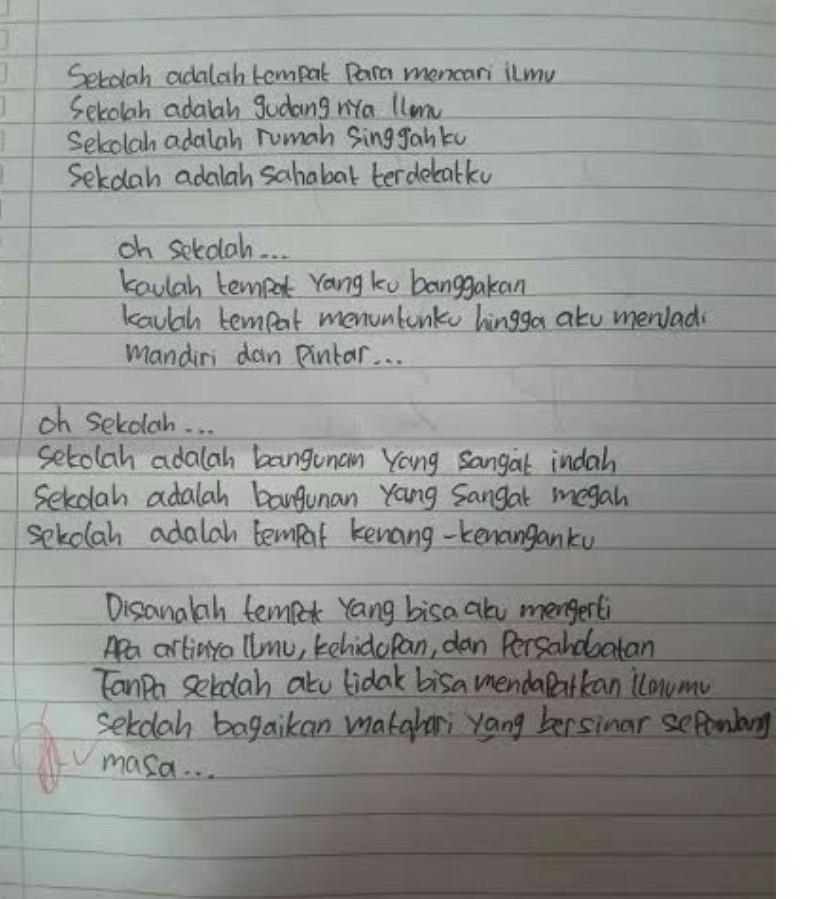 Sekolah adalah tempat para mencari ilmu
Sekolah adalah gudang nya Ilmu
Sekolah adalah rumah Singgahku
Sekolah adalah Sahabat terdekatku
oh sekolah...
kaulah tempat Yang ku banggakan
kaulah tempat menuntunku hingga aku menjadi
mandiri dan Pintar...
oh Sekolah...
Sekolah adalah bangunan Yang Sangat indah
Sekolah adalah bangunan Yang Sangat megah
Sekolah adalah tempat kenang-kenanganku
Disanalah tempat Yang bisa aku mengerti
Apa artinya Ilmu, kehidupan, dan Persahabatan
Tanpa sekolah aku tidak bisa mendapatkan ilmumu
Sekolah bagaikan matahari yang bersinar sepanjang
masa...